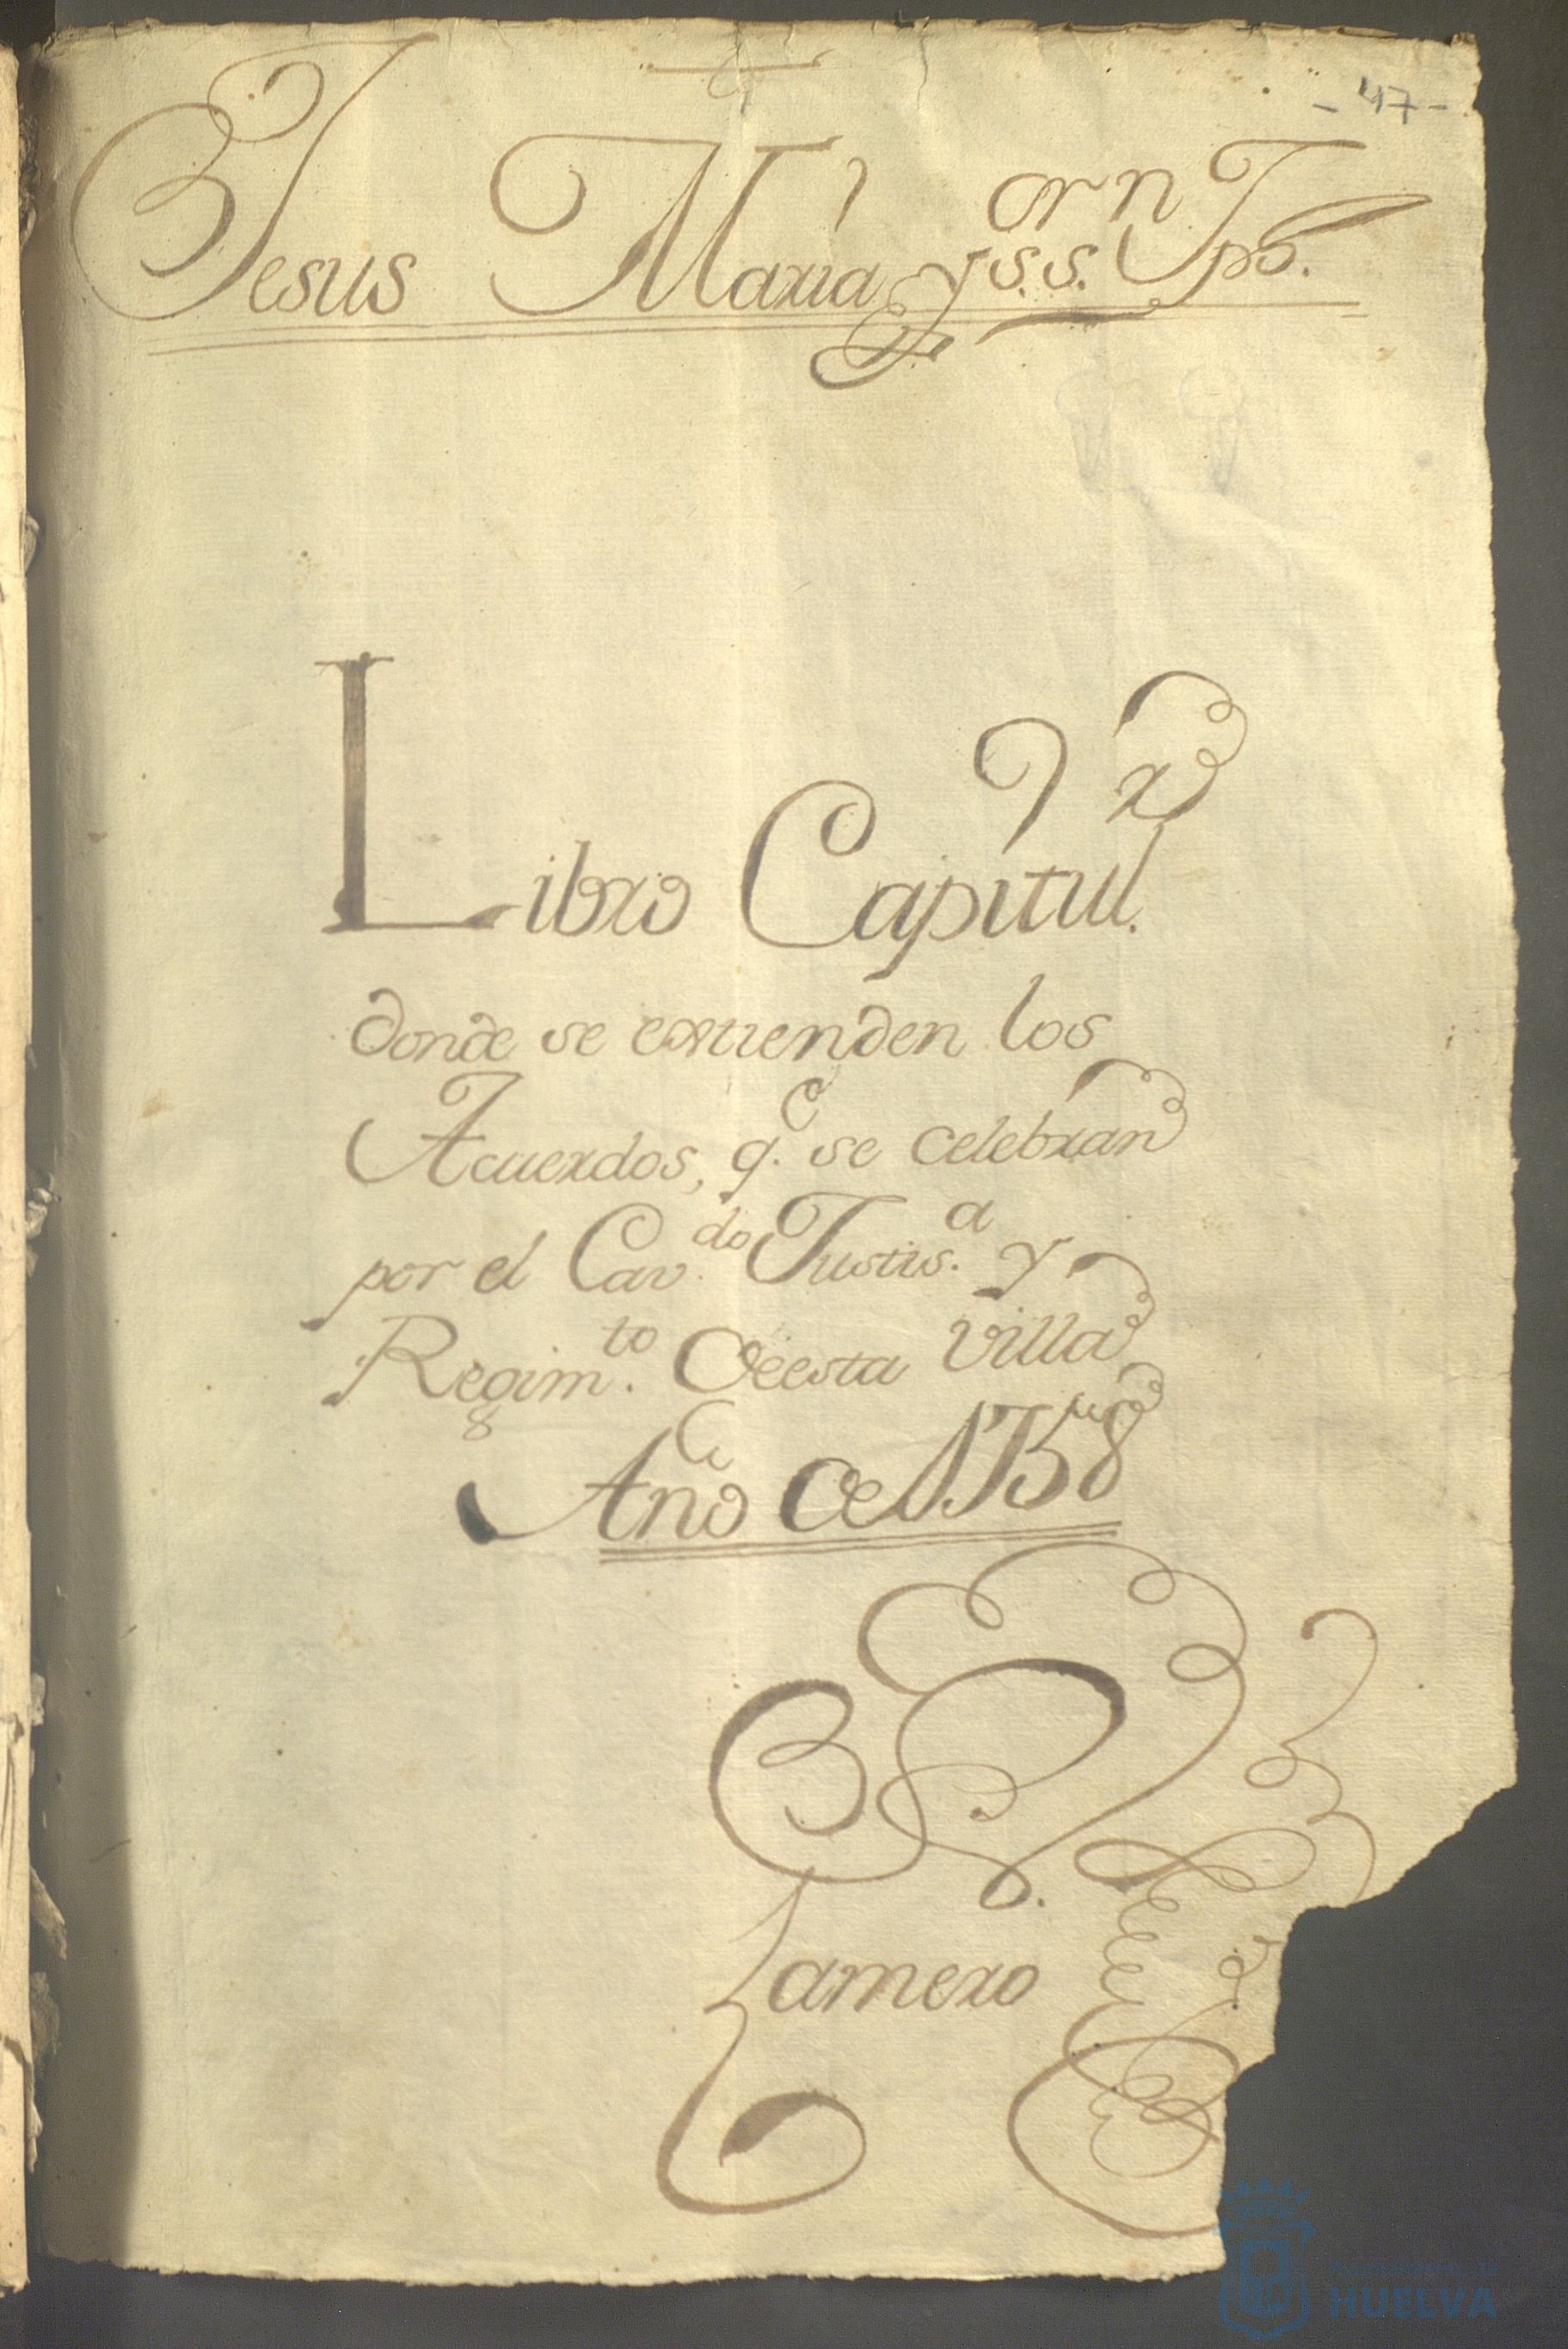 - 47 -
Jesus Maria y S.or S.n Jph.
Libro Capitul.r
donde se extienden los
Acuerdos, q.e se celebran
por el Cav.do Justis.a y
Regim.to de esta Villa
Año de 1758
Zamero
HUELVA